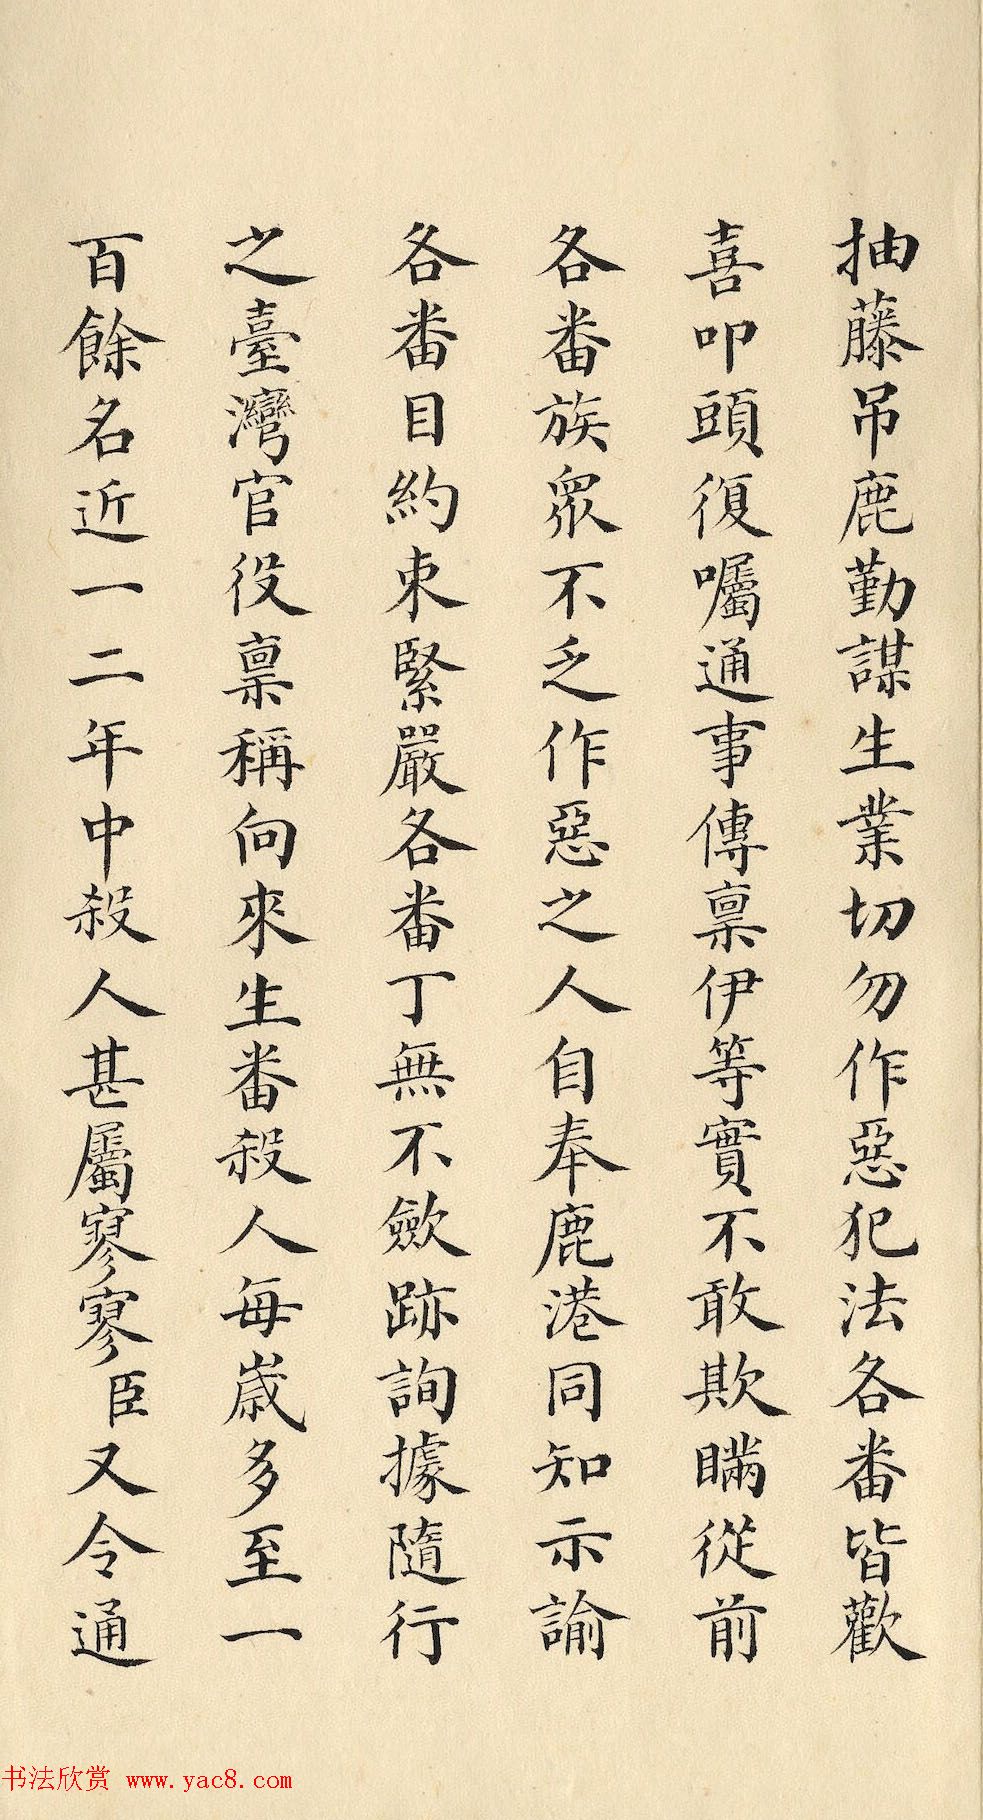 抽藤吊鹿勤謀生業切勿作惡犯法各番皆歡
喜叩頭復囑通事傳稟伊等實不敢欺瞞從前
各番族眾不乏作惡之人自奉鹿港同知示諭
各番目約束緊嚴各番丁無不歛跡詢據隨行
之臺灣官役稟稱向來生番殺人每歲多至一
百餘名近一二年中殺人甚屬寥寥臣又令通
书法欣赏 www.yac8.com